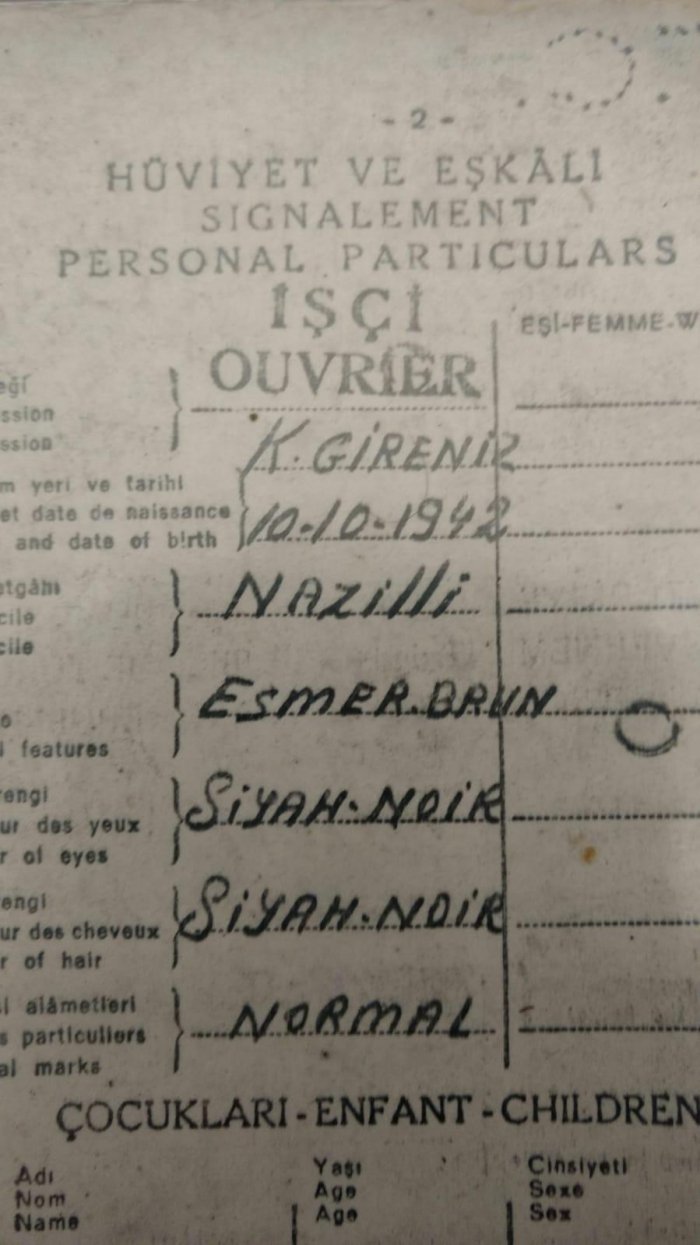 - 2 -
HÜVİYET VE EŞKÂLİ
SIGNALEMENT
PERSONAL PARTICULARS
İŞÇİ
EŞİ-FEMME-W
OUVRIER
eği
ssion
ssion
K. GİRENİZ
m yeri ve tarihi
et date de naissance
and date of birth
10-10-1942
etgâhı
cile
cile
NAZilli
ESMER.BRUN
l features
rengi
ur des yeux
r of eyes
SİYAH-NOİR
engi
ur des cheveux
r of hair
SİYAH-NOİR
i alâmetleri
s particuliers
al marks
NORMAL
ÇOCUKLARI-ENFANT-CHILDREN
Adı Yaşı Cinsiyeti
Nom Age Sexe
Name Age Sex